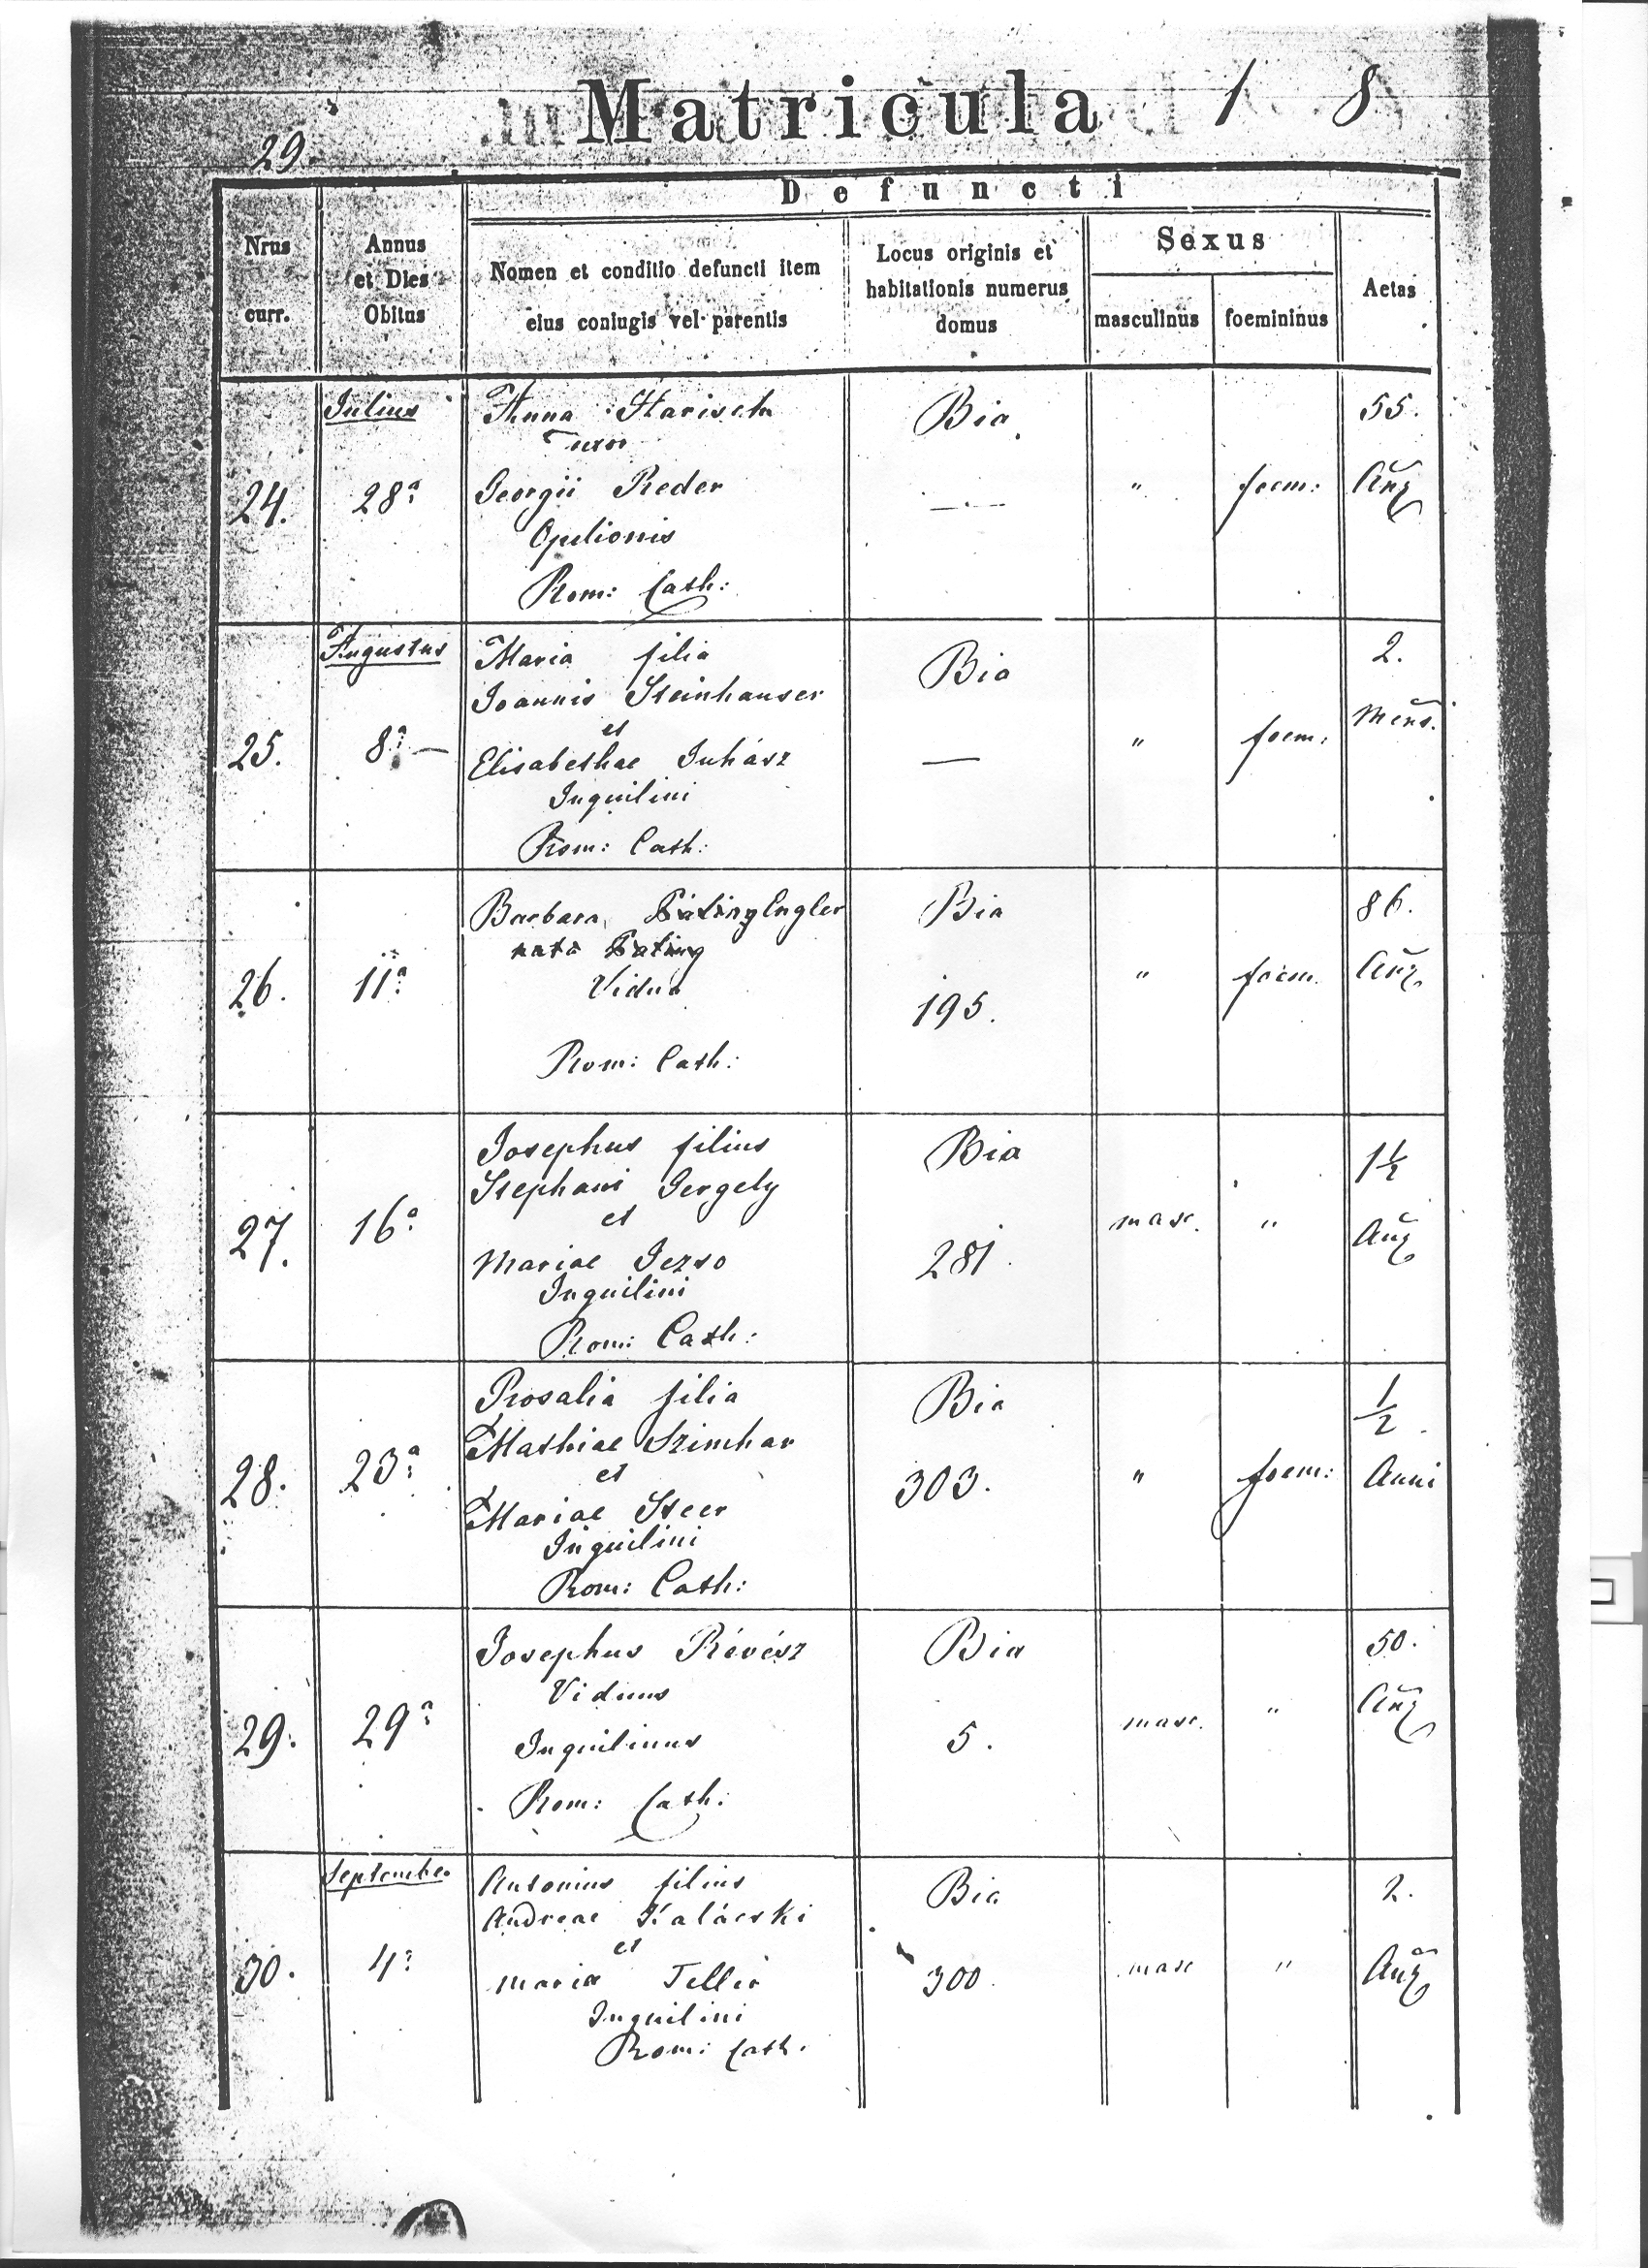 Matricula 1 8
29.
Defuncti
Nrus curr.
Annus et Dies Obitus
Nomen et conditio defuncti item eius coniugis vel parentis
Locus originis et habitationis numerus domus
Sexus
masculinus
foemininus
Aetas
Julius
24.
28ª
Anna Harisch
uxor
Georgii Reder
Opilionis
Rom: Cath:
Bia
— · —
"
foem:
55.
Añ
Augustus
25.
8ª —
Maria filia
Joannis Steinhauser
et
Elisabethae Juhász
Inquilini
Rom: Cath:
Bia
—
"
foem:
2.
Mens.
26.
11ª
Barbara Engler
nata
Vidua
Rom: Cath:
Bia
195.
"
foem.
86.
Añ
27.
16ª
Josephus filius
Stephani Gergely
et
Mariae Jezso
Inquilini
Rom: Cath:
Bia
281.
masc.
"
1½
Añ
28.
23ª
Rosalia filia
Mathiae Szimhar
et
Mariae Steer
Inquilini
Rom: Cath:
Bia
303.
"
foem:
½
Anni
29.
29ª
Josephus Révész
Viduus
Inquilinus
Rom: Cath:
Bia
5.
masc.
"
50.
Añ
September
30.
4ª
Antonius filius
Andreae Kalácski
et
Maria Teller
Inquilini
Rom: Cath.
Bia
300.
masc
"
2.
Añ